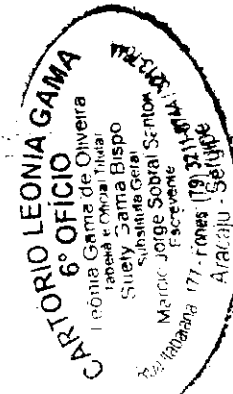 CARTÓRIO LEONIA GAMA
6° OFÍCIO
Leônia Gama de Oliveira
Tabeliã e Oficial Titular
Suely Gama Bispo
Substituta Geral
Jorge Sobral Santos
Escrevente
Itabaiana 177 - Fones (79)
Aracaju - Sergipe